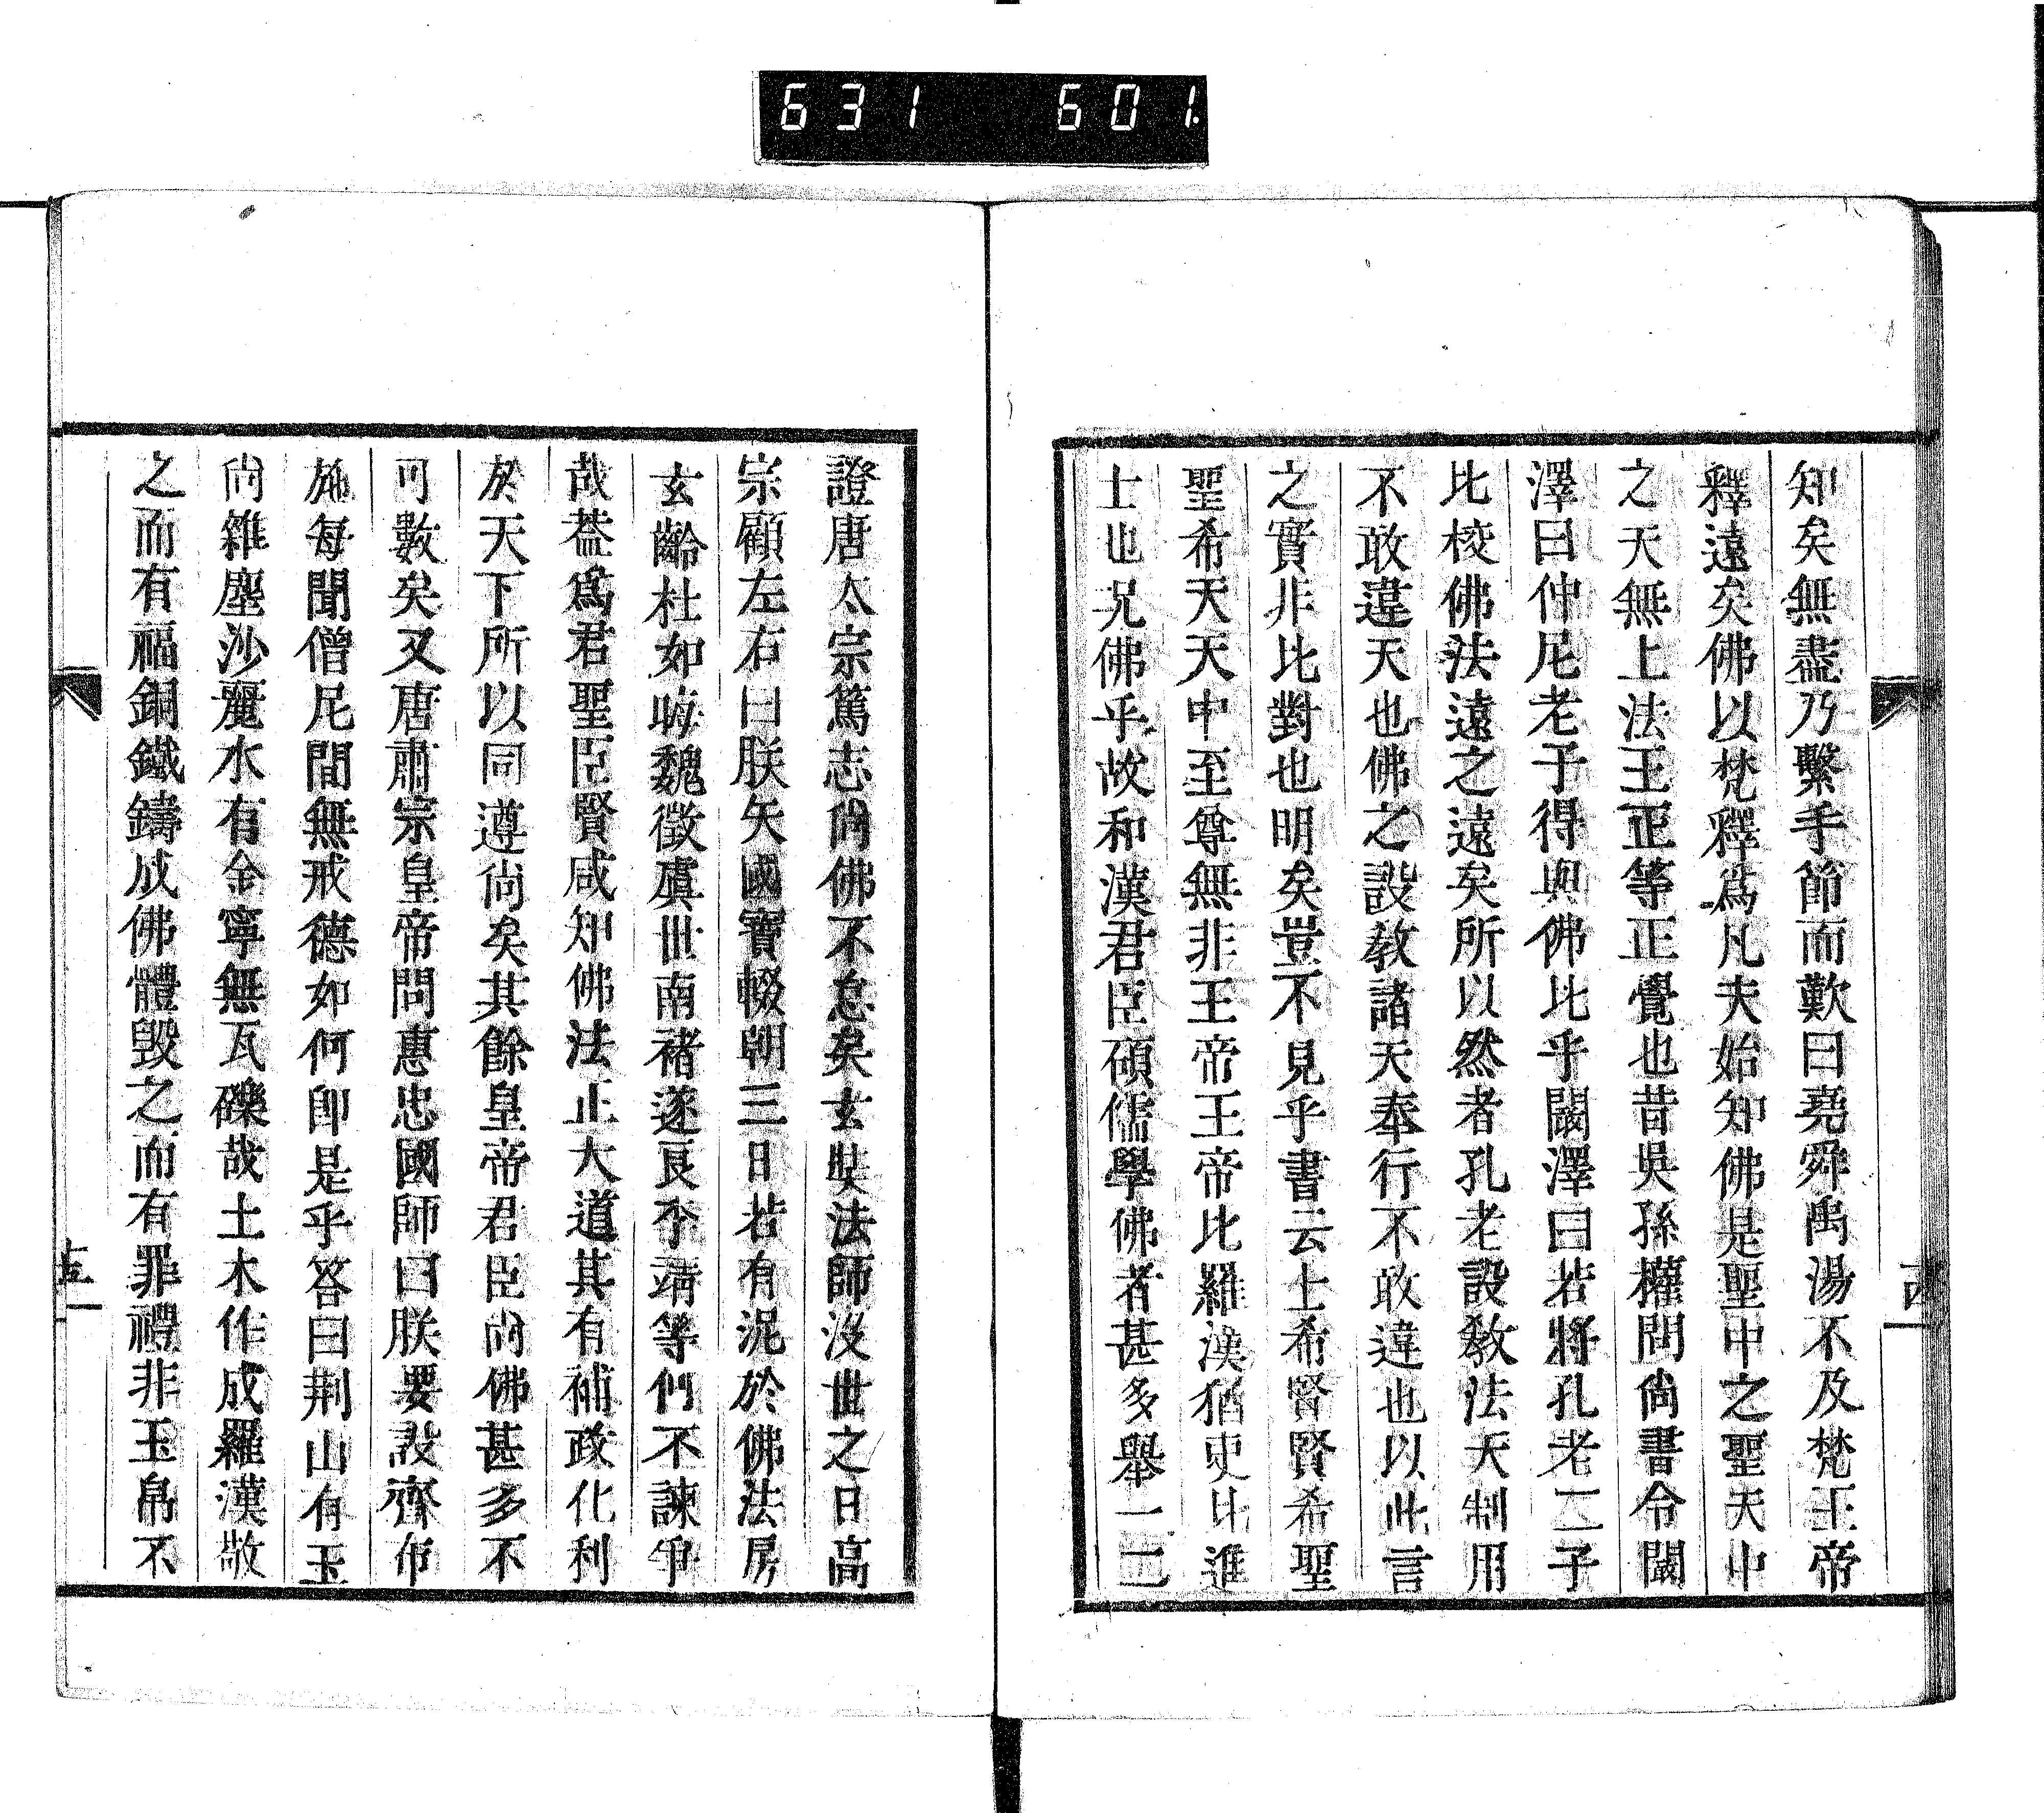 631 601.
知矣無盡乃繫手節而歎曰堯舜禹湯不及梵王帝
釋遠矣佛以梵釋爲凡夫始知佛是聖中之聖天中
之天無上法王正等正覺也昔吳孫權問尙書令闞
澤曰仲尼老子得與佛比乎闞澤曰若將孔老二子
比校佛法遠之遠矣所以然者孔老設敎法天制用
不敢違天也佛之設敎諸天奉行不敢違也以此言
之實非比對也明矣豈不見乎書云士希賢賢希聖
聖希天天中至尊無非王帝王帝比羅漢猶吏比進
士也況佛乎故和漢君臣碩儒學佛者甚多舉一二
十四
證唐太宗篤志尙佛不怠矣玄奘法師沒世之日高
宗顧左右曰朕矢國寶輟朝三日若有泥於佛法房
玄齡杜如晦魏徵虞世南褚遂良李靖等們不諫爭
哉葢爲君聖臣賢咸知佛法正大道其有補政化利
於天下所以同遵尙矣其餘皇帝君臣尙佛甚多不
可數矣又唐肅宗皇帝問惠忠國師曰朕要設齊布
施每聞僧尼間無戒德如何卽是乎答曰荆山有玉
尙雜塵沙麗水有金寧無瓦礫哉土木作成羅漢敬
之而有福銅鐵鑄成佛體毀之而有罪禮非玉帛不
十五